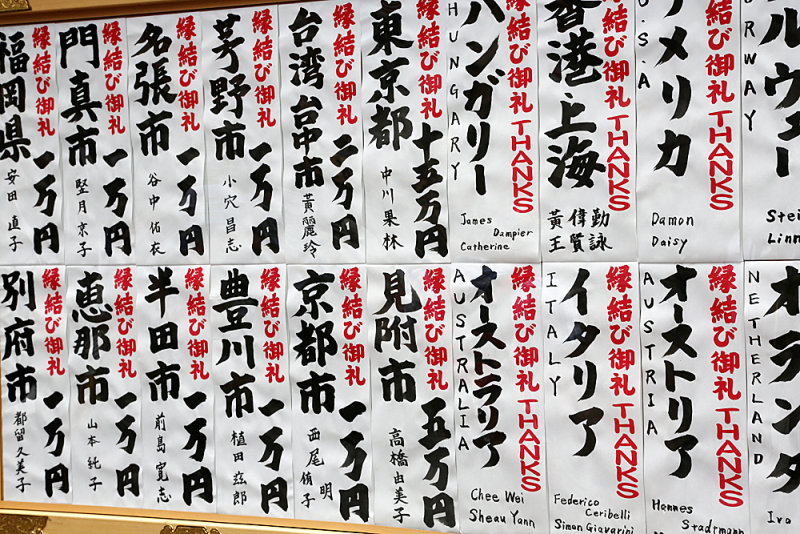 縁結び御礼
福岡県
一万円
安田 直子
縁結び御礼
門真市
一万円
竪月京子
縁結び御礼
名張市
一万円
谷中佑衣
縁結び御礼
茅野市
一万円
小穴昌志
縁結び御礼
台湾 台中市
二万円
黃麗玲
縁結び御礼
東京都
十五万円
中川果林
縁結び御礼 THANKS
ハンガリー
HUNGARY
James
Dampier
Catherine
縁結び御礼 THANKS
香港・上海
黃偉勤
王賢詠
縁結び御礼 THANKS
アメリカ
U.S.A
Damon
Daisy
ルウェー
RWAY
縁結び御礼
別府市
一万円
都留久美子
縁結び御礼
恵那市
一万円
山本純子
縁結び御礼
半田市
一万円
前島寛志
縁結び御礼
豊川市
一万円
植田
縁結び御礼
京都市
一万円
西尾 明
侑子
縁結び御礼
見附市
五万円
高橋由美子
縁結び御礼 THANKS
オーストラリア
AUSTRALIA
Chee Wei
Sheau Yann
縁結び御礼 THANKS
イタリア
ITALY
Federico
Ceribelli
Simon Giavarini
縁結び御礼 THANKS
オーストリア
AUSTRIA
Hannes
Stadtmann
オランダ
NETHERLAND